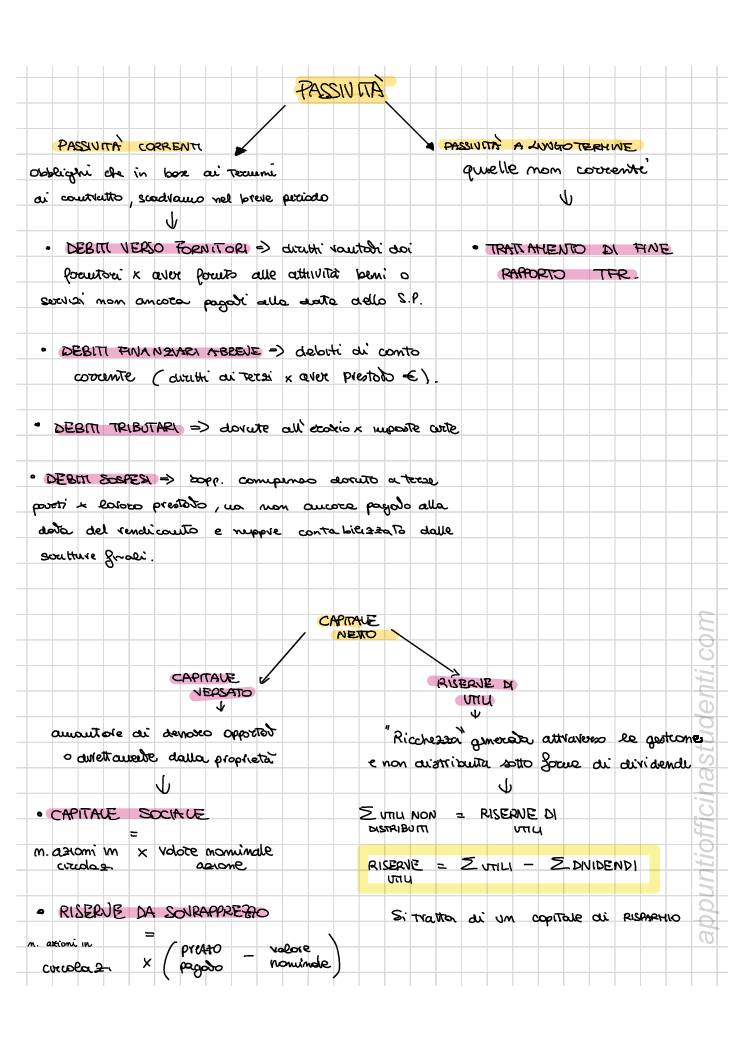 PASSIVITÀ
PASSIVITÀ CORRENTI
obblighi che in base ai termini
di contratto, scadranno nel breve periodo
• DEBITI VERSO FORNITORI => diritti vantati dai
fornitori x aver fornito alle attività beni o
servizi non ancora pagati alla data dello S.P.
• DEBITI FINANZIARI A BREVE => debiti di conto
corrente (diritti di terzi x aver prestato €).
• DEBITI TRIBUTARI => dovute all'erario x imposte certe
• DEBITI SOSPESI => rapp. compenso dovuto a terze
parti x lavoro prestato, ma non ancora pagato alla
data del rendiconto e neppure contabilizzato dalle
scritture finali.
PASSIVITÀ A LUNGO TERMINE
quelle non correnti
• TRATTAMENTO DI FINE
RAPPORTO TFR.
CAPITALE
NETTO
CAPITALE
VERSATO
ammontare di denaro apportato
o direttamente dalla proprietà
• CAPITALE SOCIALE
=
n. azioni in x valore nominale
circolaz. azione
• RISERVE DA SOVRAPPREZZO
=
n. azioni in
circolaz. x ( prezzo pagato - valore nominale )
RISERVE DI
UTILI
"Ricchezza" generata attraverso la gestione
e non distribuita sotto forma di dividendi
∑ UTILI NON = RISERVE DI
DISTRIBUITI UTILI
RISERVE = ∑ UTILI - ∑ DIVIDENDI
UTILI
Si tratta di un capitale di RISPARMIO
appuntiofficinastudenti.com